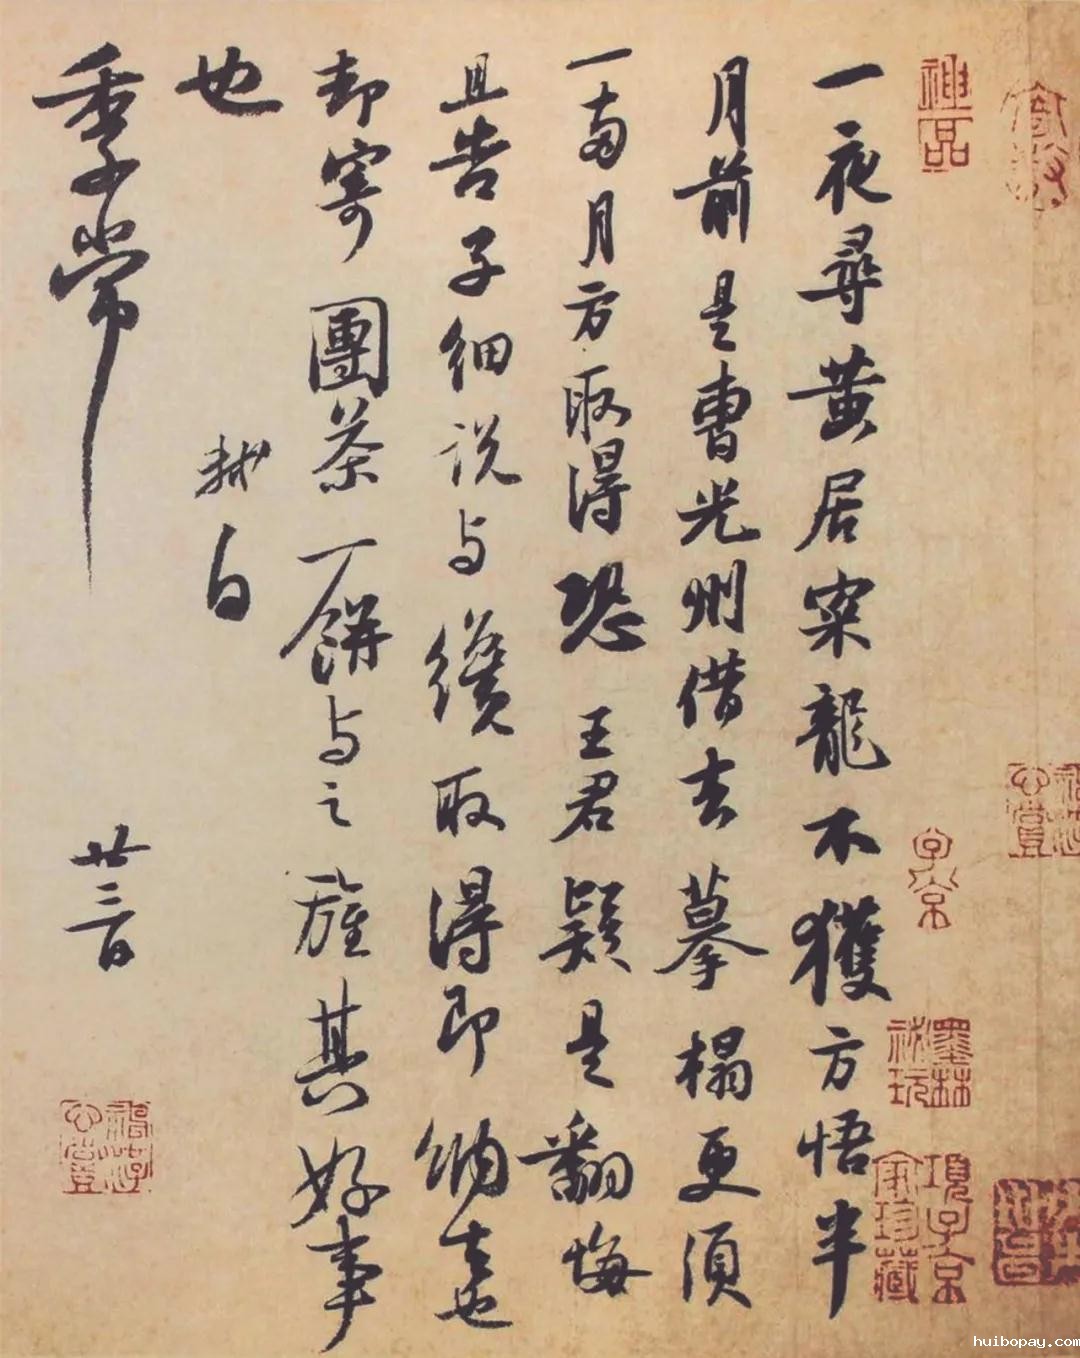 一夜尋黄居寀龍不獲方悟半
月前是曹光州借去摹榻更須
一兩月方取得恐王君疑是翻悔
且告子細説与纔取得即納去也
却寄團茶一餅与之旌其好事
也
軾白
季常
廿三日
神品
子京
墨林祕玩
項子京家珍藏
huibopay.com